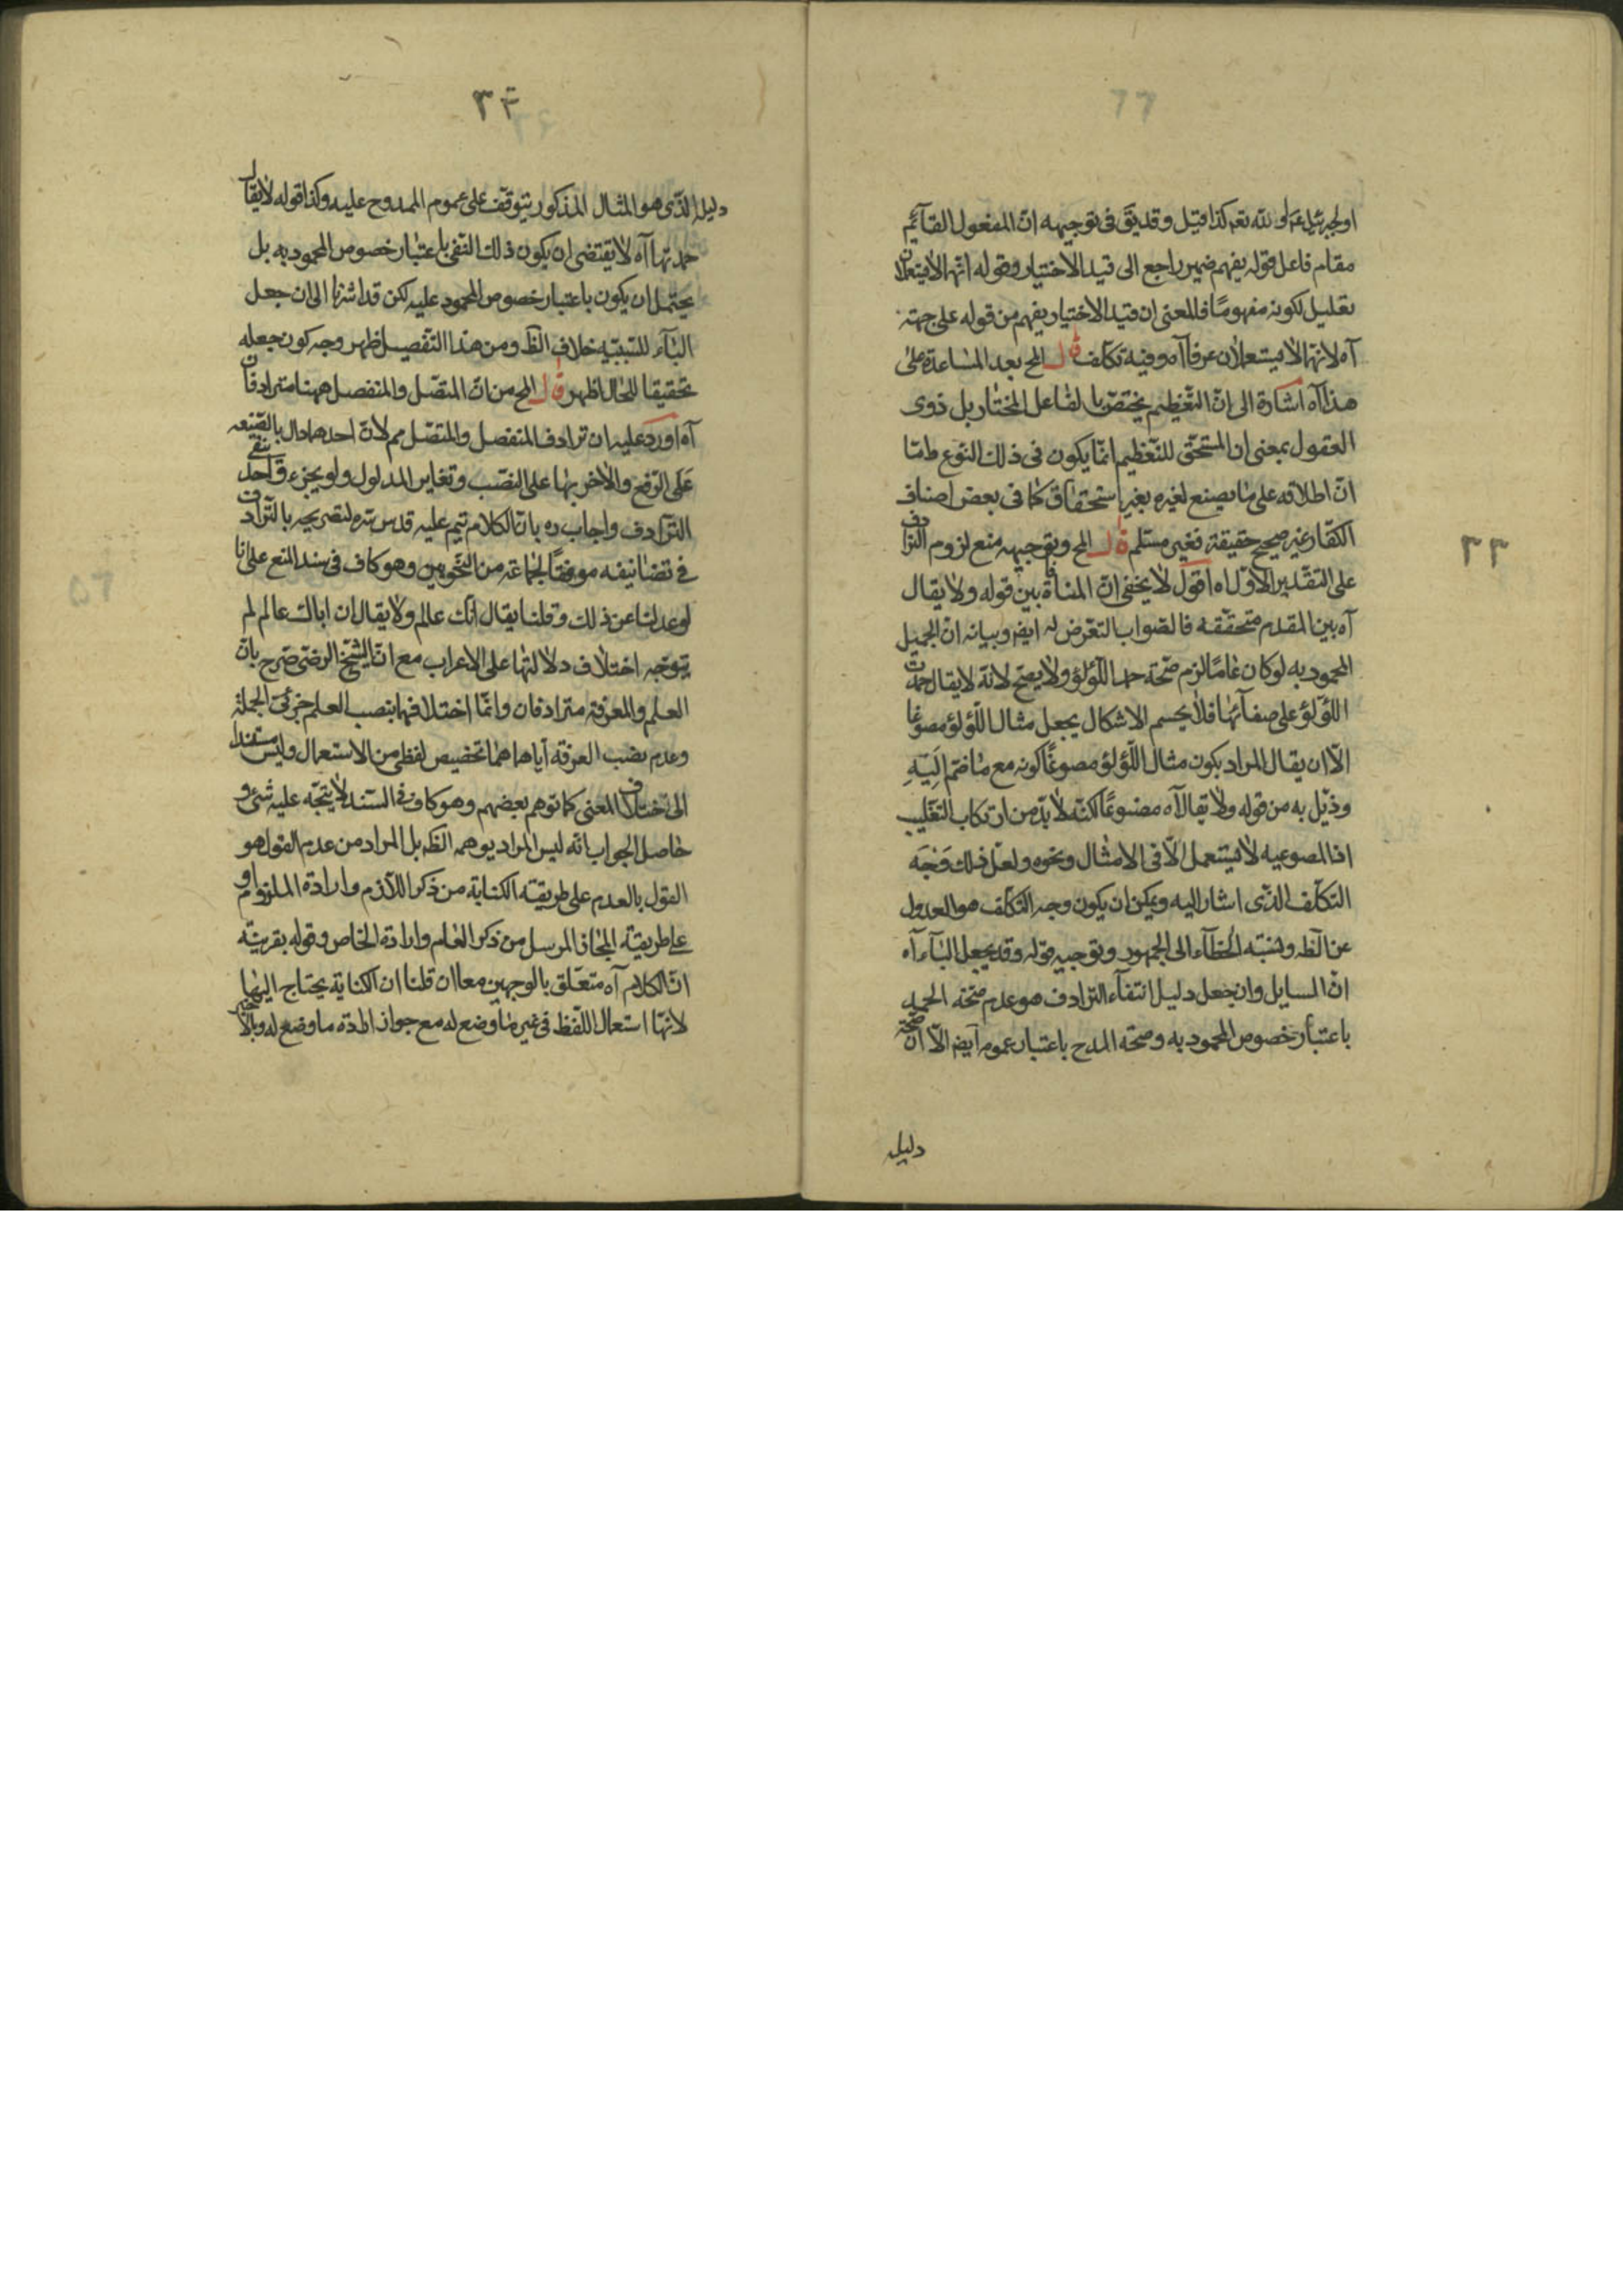 اولجبرئيل ع م لو لله تعم كذا قيل وقد يتق فى توجيهه انّ المفعول القآئم
مقام فاعل قوله يفهم ضمير راجع الى قيد الاختيار وقوله انّهما لا يستعملان
تعليل لكونه مفهومًا فالمعنى ان قيد الاختيار يفهم من قوله على جهة
آه لانهما لا يستعملان عرفا آه وفيه تكلّف قال المح بعد المساعدة على
هذا آه اشارة الى انّ التّعظيم يختصّ بالفاعل المختار بل ذوى
العقول بمعنى ان المستحق للتّعظيم انّما يكون فى ذلك النّوع وامّا
انّ اطلاقه على ما يصنع لغيره بغير استحقاق كما فى بعض اصناف
الكفّار غير صحيح حقيقة فغير مسلّم قال المح وبتوجيهه منع لزوم الترادف
على التقدير الاوّل اه اقول لا يخفى انّ المنافاة بين قوله ولا يقال
آه بين المقدم متحقّقة فالصّواب التعّرض له ايضر وبيانه انّ الجميل
المحمود به لو كان عامًا لزم صّحة حمد اللّؤلؤ ولا يصحّ لانّه لا يقال حمدت
اللّؤلؤ على صفآئها فلا يحسم الاشكال بجعل مثال اللّؤلؤ مصوغا
الّا ان يقال المراد بكون مثال اللّؤلؤ مصوغًا كونه مع ما ضمّ اليه
وذيّل به من قوله ولا يقال آه مصنوعًا لكنّه لا بدّ من ارتكاب التغّليب
اذ المصوغيه لا يستعمل الّا فى الامثال ونحوه ولعلّ ذلك وَجْه
التكلّف الذّى اشار اليه ويمكن ان يكون وجه التكلّف هو العدول
عن الظّه ونسبة الخطآء الى الجمهور وتوجيه قوله وقد يجعل البآء آه
انّ السايل وان جعل دليل انتفآء الترادف هو عدم صحّة الحمد
باعتبار خصوص المحمود به وصحّة المدح باعتبار عموم ايضر الّا انّ صحّة
دليله
٣٤
دليله الذّى هو المثال المذكور يتوقّف على عموم الممدوح عليه وكذا قوله لا يقال
حمدتها آه لا يقتضى ان يكون ذلك النّفى باعتبار خصوص المحمود به بل
يحتمل ان يكون باعتبار خصوص المحمود عليه لكن قد اشرنا الى ان جعل
البآء للسّببيّه خلاف الظّ ومن هذا التّفصيل ظهر وجه كون جعله
تحقيقا للحال اظهر قال المح من انّ المتصّل والمنفصل ههنا مترادفان
آه اورد عليه ان ترادف المنفصل والمتصّل مم لانّ احدهما دال بالصّيغه
على الرّفع والاخر بها على النصّب وتغاير المدلول ولو بجزء واحد ينفى
التّرادف واجاب ره بانّ الكلام يتم عليه قدس سّره لتصريحه بالتّرادف
فى تصانيفه موافقًا لجماعة من النّحويين وهو كاف فى سند المنع على انا
لو عدلنا عن ذلك وقلنا يقال انّك عالم ولا يقال ان اباك عالم لم
يتوجّه اختلاف دلالتها على الاعراب مع انّ الشّيخ الرضى صّرح بانّ
العلم والمعرفة مترادفان وانّما اختلافهما بنصب العلم جزئى الجملة
وعدم نصب المعرفة ايّاهما هما تخصيص لفظى من الاستعمال وليس مستندا
الى اختلاف المعنى كما توهم بعضهم وهو كاف فى السّند لا يتجّه عليه شئ و
حاصل الجواب انّه ليس المراد يوهمه الظّه بل المراد من عدم القول هو
القول بالعدم على طريقة الكناية من ذكر اللّازم وارادة الملزوم او
على طريقة المجاز المرسل من ذكر العام وارادة الخاص وقوله بقرينة
انّ الكلام آه متعلّق بالوجهين معا ان قلنا ان الكناية يحتاج اليها
لانّها استعمال اللّفظ فى غير ما وضع له مع جواز ارادة ما وضع له وبالاخير